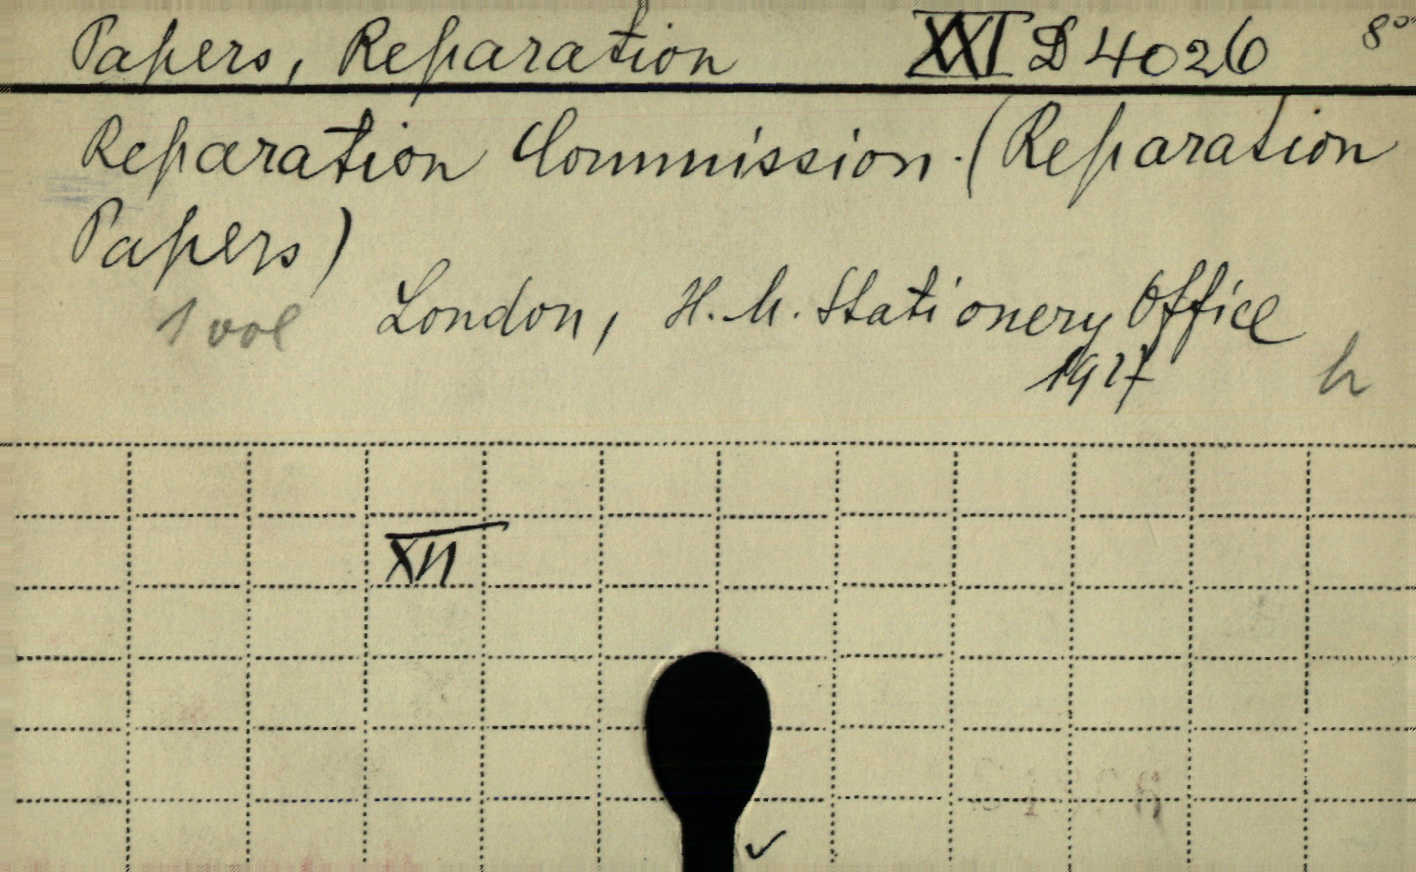 Papers, Reparation XXI D 4026 8°
Reparation Commission. (Reparation
Papers)
1 vol London, H. M. Stationery Office
1927 h
XVI